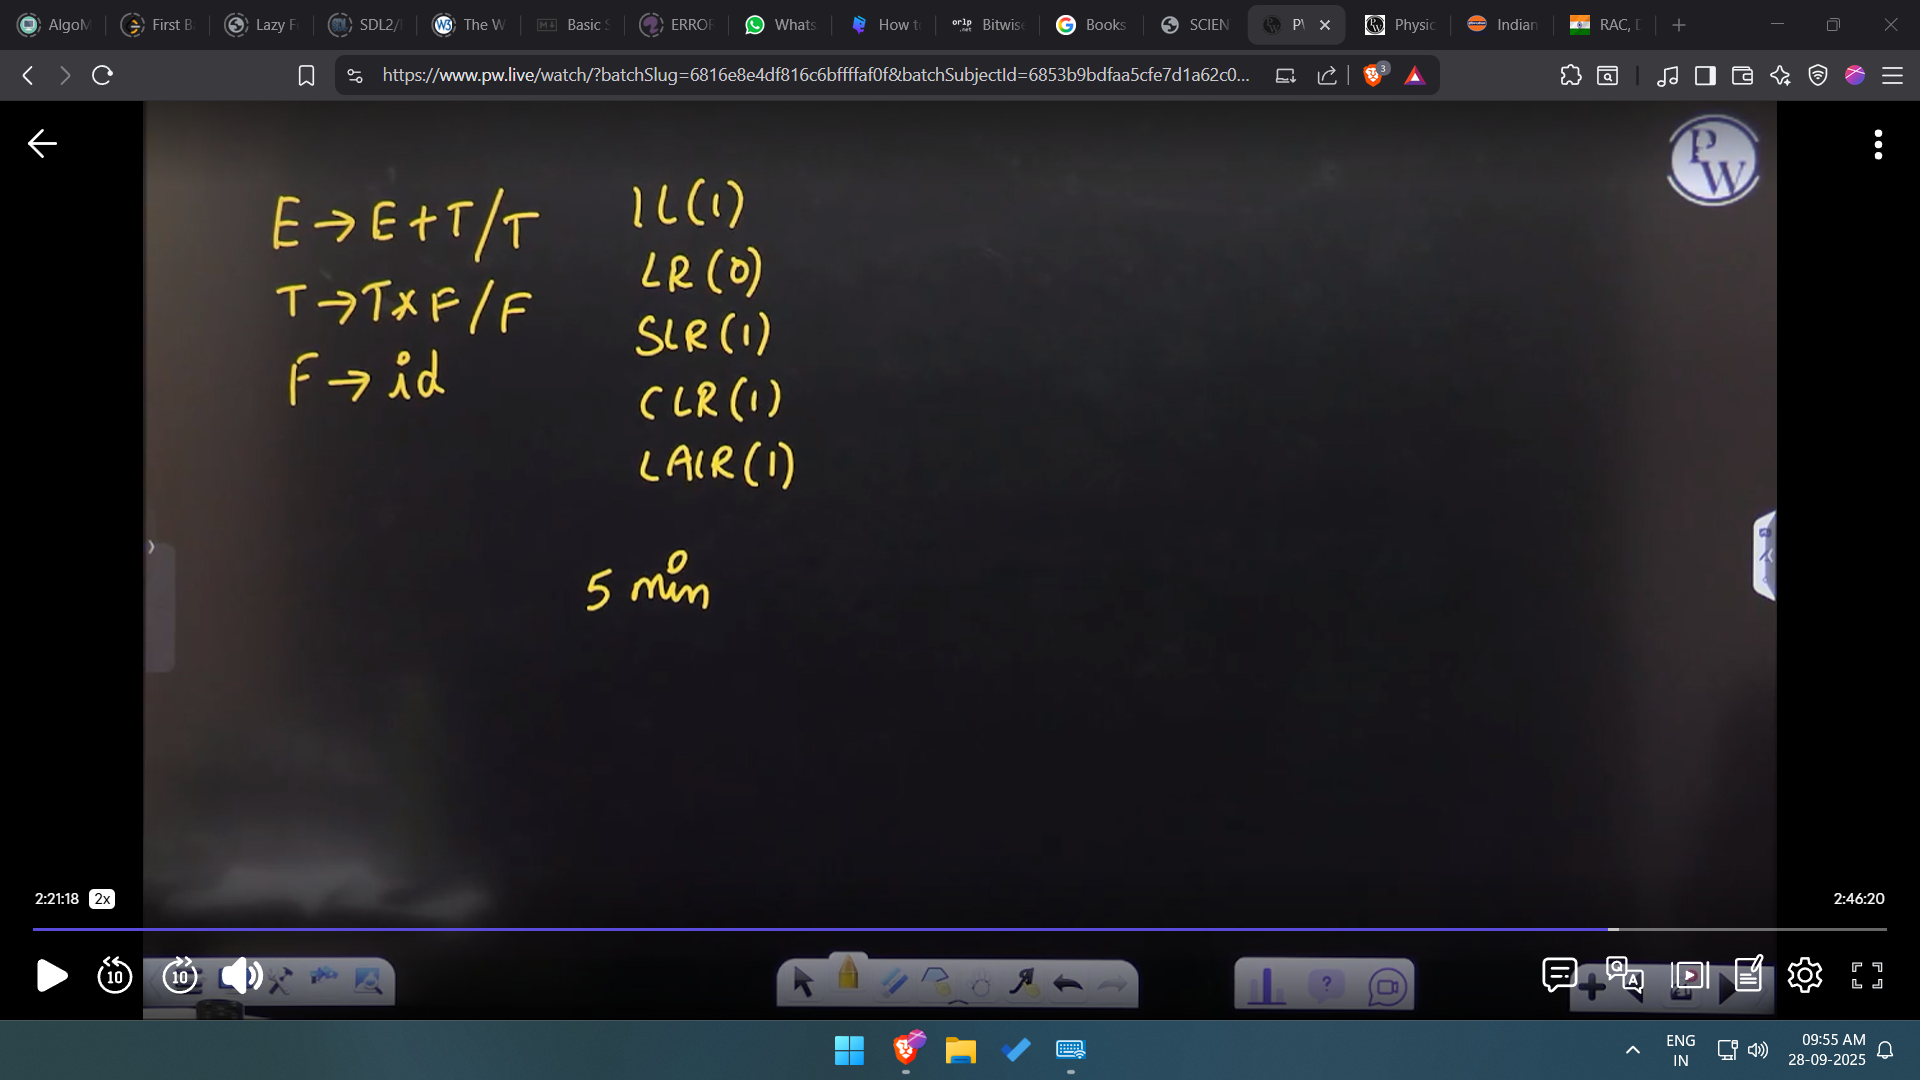 AlgoM
First B
Lazy F
SDL2/
The W
Basic S
ERROR
Whats
How to
orlp .net
Bitwise
Books
SCIEN
PW
Physic
Indian
RAC, D
https://www.pw.live/watch/?batchSlug=6816e8e4df816c6bffffaf0f&batchSubjectId=6853b9bdfaa5cfe7d1a62c0...
3
PW
E → E + T / T
T → T x F / F
F → id
LL(1)
LR(0)
SLR(1)
CLR(1)
LALR(1)
5 min
2:21:18 2x
2:46:20
10
10
ENG
IN
09:55 AM
28-09-2025